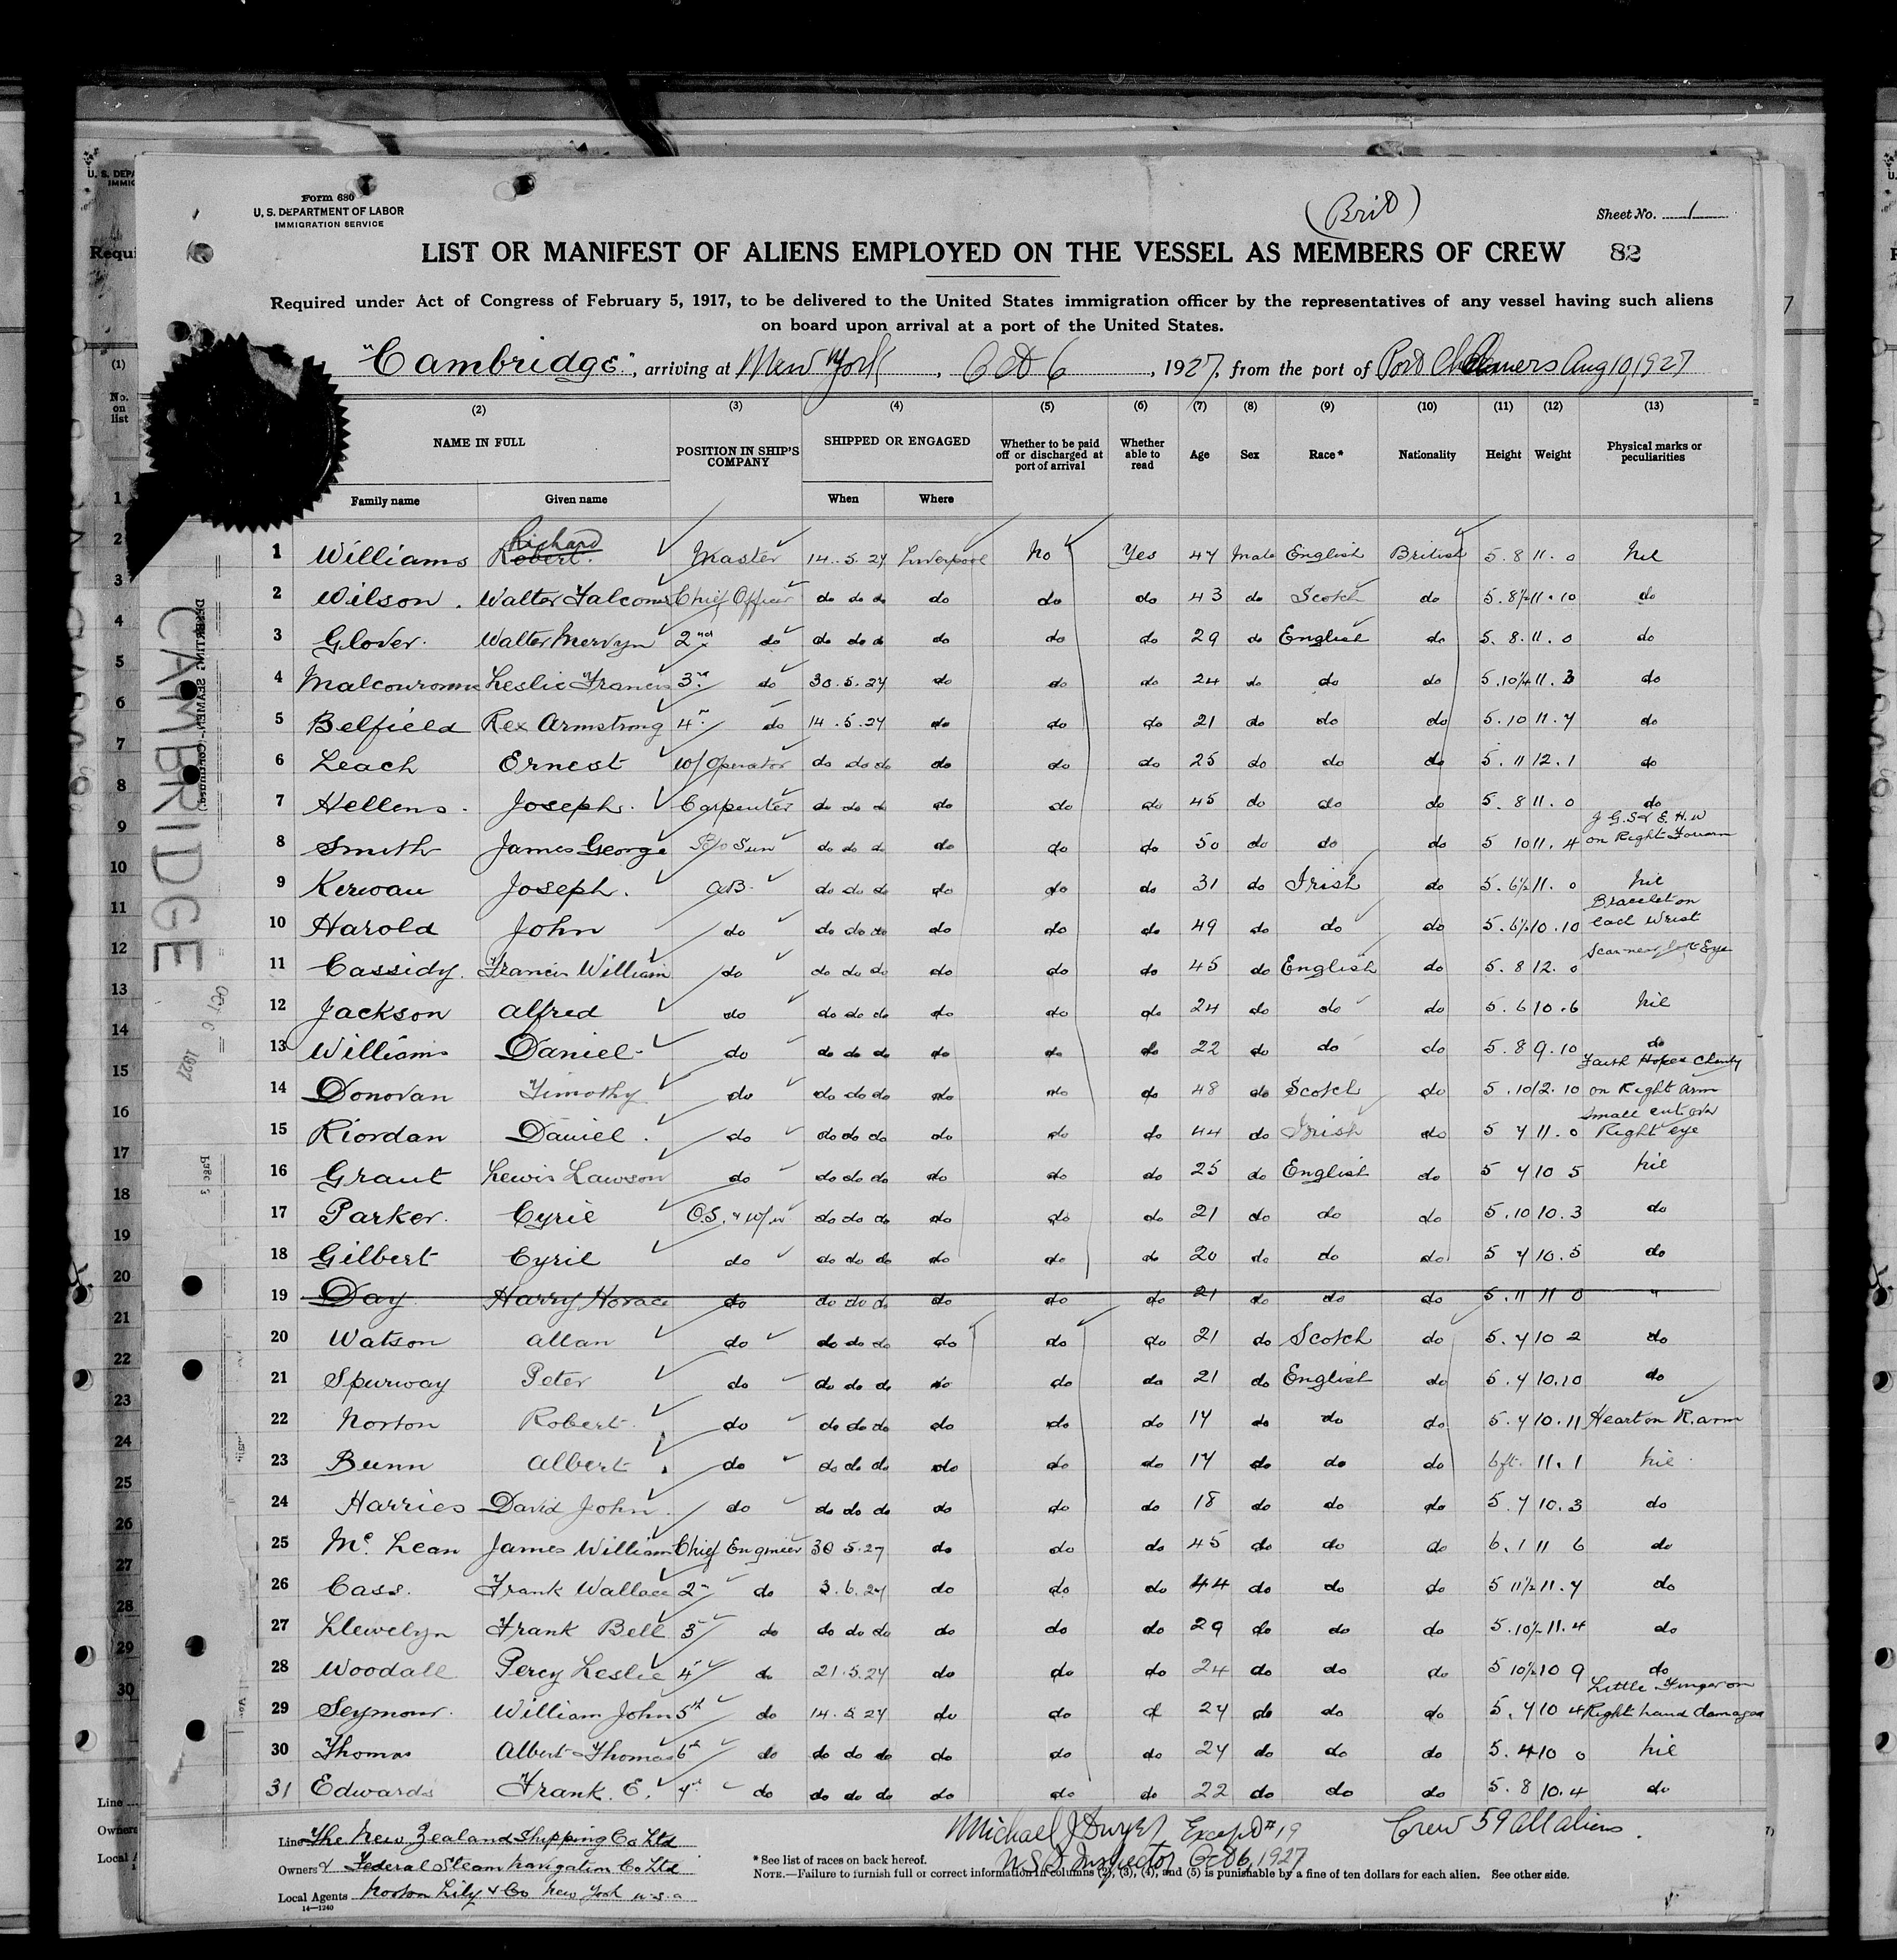 Form 680
U. S. DEPARTMENT OF LABOR
IMMIGRATION SERVICE
(Brit)
Sheet No. 1
LIST OR MANIFEST OF ALIENS EMPLOYED ON THE VESSEL AS MEMBERS OF CREW 82
Required under Act of Congress of February 5, 1917, to be delivered to the United States immigration officer by the representatives of any vessel having such aliens
on board upon arrival at a port of the United States.
"Cambridge", arriving at New York, Oct 6, 1927, from the port of Port Chalmers Aug 10, 1927
(2) (3) (4) (5) (6) (7) (8) (9) (10) (11) (12) (13)
NAME IN FULL POSITION IN SHIP'S COMPANY SHIPPED OR ENGAGED Whether to be paid off or discharged at port of arrival Whether able to read Age Sex Race* Nationality Height Weight Physical marks or peculiarities
Family name Given name When Where
Richard
1 Williams Robert. Master 14.5.27 Liverpool No Yes 47 Male English British 5.8 11.0 Nil
2 Wilson. Walter Chief Officer do do do do do do 43 do Scotch do 5.8½ 11.10 do
3 Glover. Walter Mervyn 2nd do do do do do do do 29 do English do 5.8. 11.0 do
4 Leslie Francis 3rd do 30.5.27 do do do 24 do do do 5.10¼ 11.3 do
5 Belfield Rex Armstrong 4 do 14.5.27 do do do 21 do do do 5.10 11.7 do
6 Leach Ernest W/Operator do do do do do do 25 do do do 5.11 12.1 do
7 Hellens. Joseph. Carpenter do do do do do do 45 do do do 5.8 11.0 do
J.G.S & E.H.W
8 Smith James George do do do do do do 50 do do do 5 10 11.4 on Right Forearm
9 Kerwan Joseph. AB. do do do do do do 31 do Irish do 5.6½ 11.0 Nil
Bracelet on
10 Harold John do do do do do do do 49 do do do 5.6½ 10.10 each Wrist
Scar near left Eye
11 Cassidy. Francis William do do do do do do do 45 do English do 5.8 12.0
12 Jackson Alfred do do do do do do do 24 do do do 5.6 10.6 Nil
13 Williams Daniel do do do do do do do 22 do do do 5.8 9.10 do
Faith Hope & Charity
14 Donovan Timothy do do do do do do do 48 do Scotch do 5.10 12.10 on Right Arm
Small cut over
15 Riordan Daniel. do do do do do do do 44 do Irish do 5 7 11.0 Right eye
16 Grant Lewis Lawson do do do do do do do 25 do English do 5 7 10 5 Nil
17 Parker. Cyril O.S. do do do do do do 21 do do do 5.10 10.3 do
18 Gilbert Cyril do do do do do do do 20 do do do 5 7 10.5 do
19 Day Harry Horace do do do do do do do 21 do do do 5.11 11 0 "
20 Watson Allan do do do do do do do 21 do Scotch do 5.7 10 2 do
21 Spurway Peter do do do do do do do 21 do English do 5.7 10.10 do
22 Norton Robert. do do do do do do do 17 do do do 5.7 10.11 Heart on R. arm
23 Bunn Albert. do do do do do do do 17 do do do 6ft. 11.1 Nil
24 Harries David John. do do do do do do do 18 do do do 5.7 10.3 do
25 Mc Lean James William Chief Engineer 30 5.27 do do do 45 do do do 6.1 11 6 do
26 Cass. Frank Wallace 2nd do 3.6.27 do do do 44 do do do 5 11½ 11.7 do
27 Llewelyn Frank Bell 3 do do do do do do do 29 do do do 5.10½ 11.4 do
28 Woodall Percy Leslie 4 do 21.5.27 do do do 24 do do do 5 10½ 10 9 do
Little Finger on
29 Seymour. William John 5th do 14.5 27 do do d 27 do do do 5.7 10 4 Right hand damaged
30 Thomas Albert Thomas 6th do do do do do do do 27 do do do 5.4 10 0 Nil
31 Edwards Frank. E. 7th do do do do do do do 22 do do do 5.8 10.4 do
Michael J Dwyer Except #19 Crew 59 All aliens.
U.S. Inspector Oct 6, 1927
Line The New Zealand Shipping Co Ltd
Owners & Federal Steam Navigation Co Ltd
Local Agents Norton Lily & Co New York U.S.A
14—1240
* See list of races on back hereof.
NOTE.—Failure to furnish full or correct information in columns (2), (3), (4), and (5) is punishable by a fine of ten dollars for each alien. See other side.
CAMBRIDGE
OCT 6 1927
Page 3